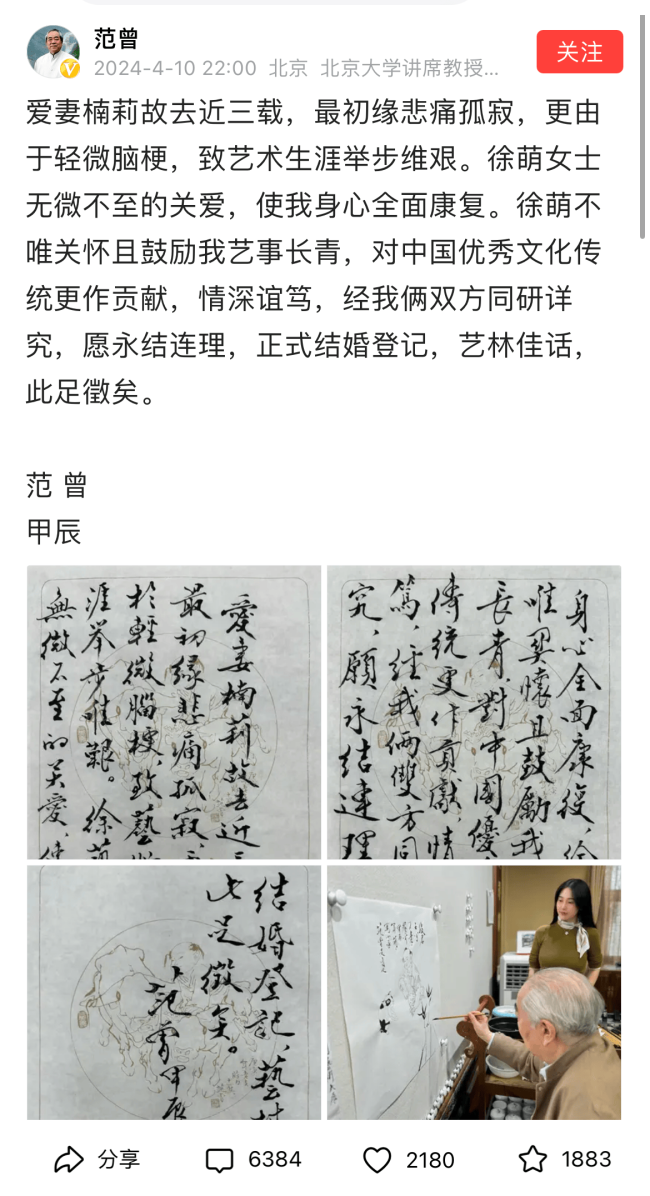 范曾
关注
2024-4-10 22:00 北京 北京大学讲席教授...
爱妻楠莉故去近三载，最初缘悲痛孤寂，更由
于轻微脑梗，致艺术生涯举步维艰。徐萌女士
无微不至的关爱，使我身心全面康复。徐萌不
唯关怀且鼓励我艺事长青，对中国优秀文化传
统更作贡献，情深谊笃，经我俩双方同研详
究，愿永结连理，正式结婚登记，艺林佳话，
此足徵矣。
范 曾
甲辰
愛妻楠莉故去近三
最初緣悲痛孤寂，
於輕微腦梗，致藝
涯举步维艱。徐萌
無微不至的关愛，使
身心全面康復，徐
唯関懷且鼓勵我
長青，對中國優
傳統更作貢獻，情
篤，經我俩雙方同
究，願永结連理
结婚登記，藝林
此足徵矣。
范曾甲辰
分享
6384
2180
1883